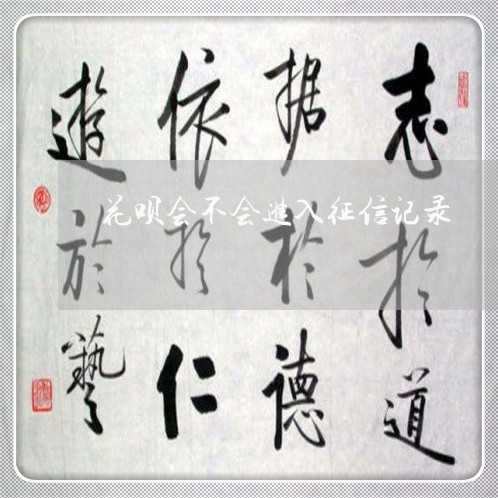 志扵道
据於德
依扵仁
遊於藝
花呗会不会進入征信记录